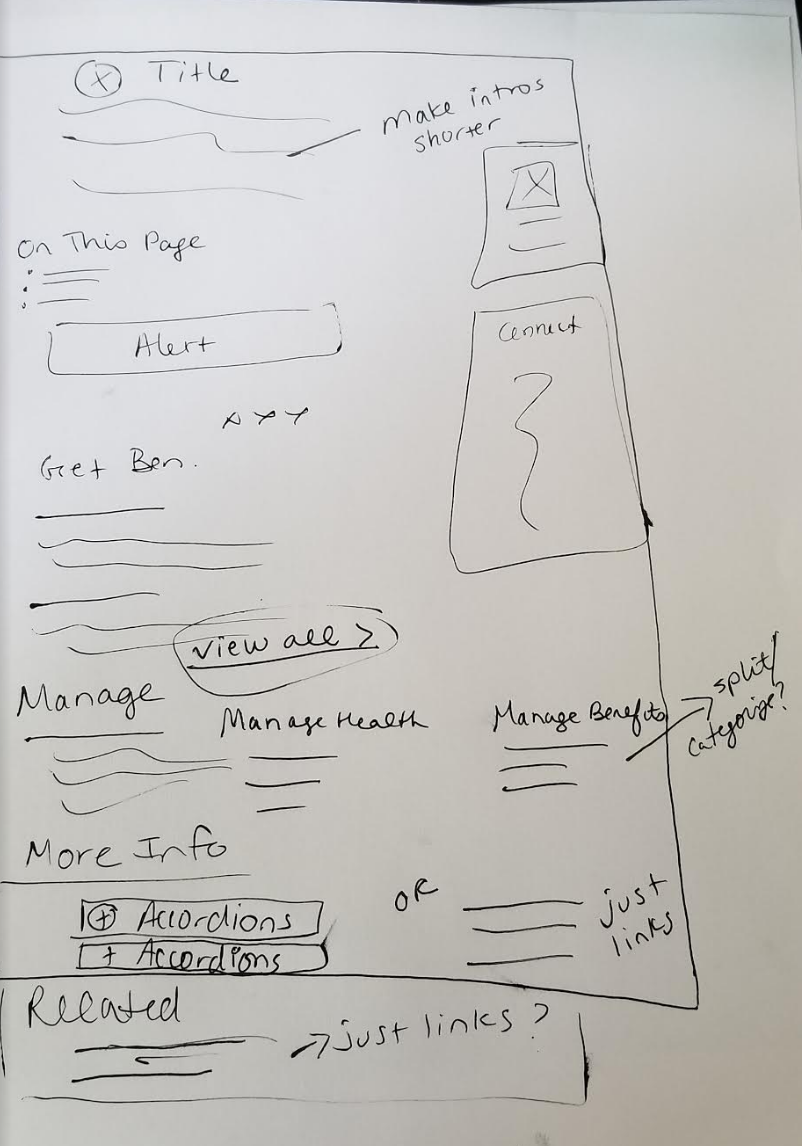 Title
make intros
shorter
On This Page
Alert
Connect
Get Ben.
View all >
Manage
Manage Health
Manage Benefits
split/
categorize?
More Info
+ Accordions
+ Accordions
OR
just
links
Related
just links?